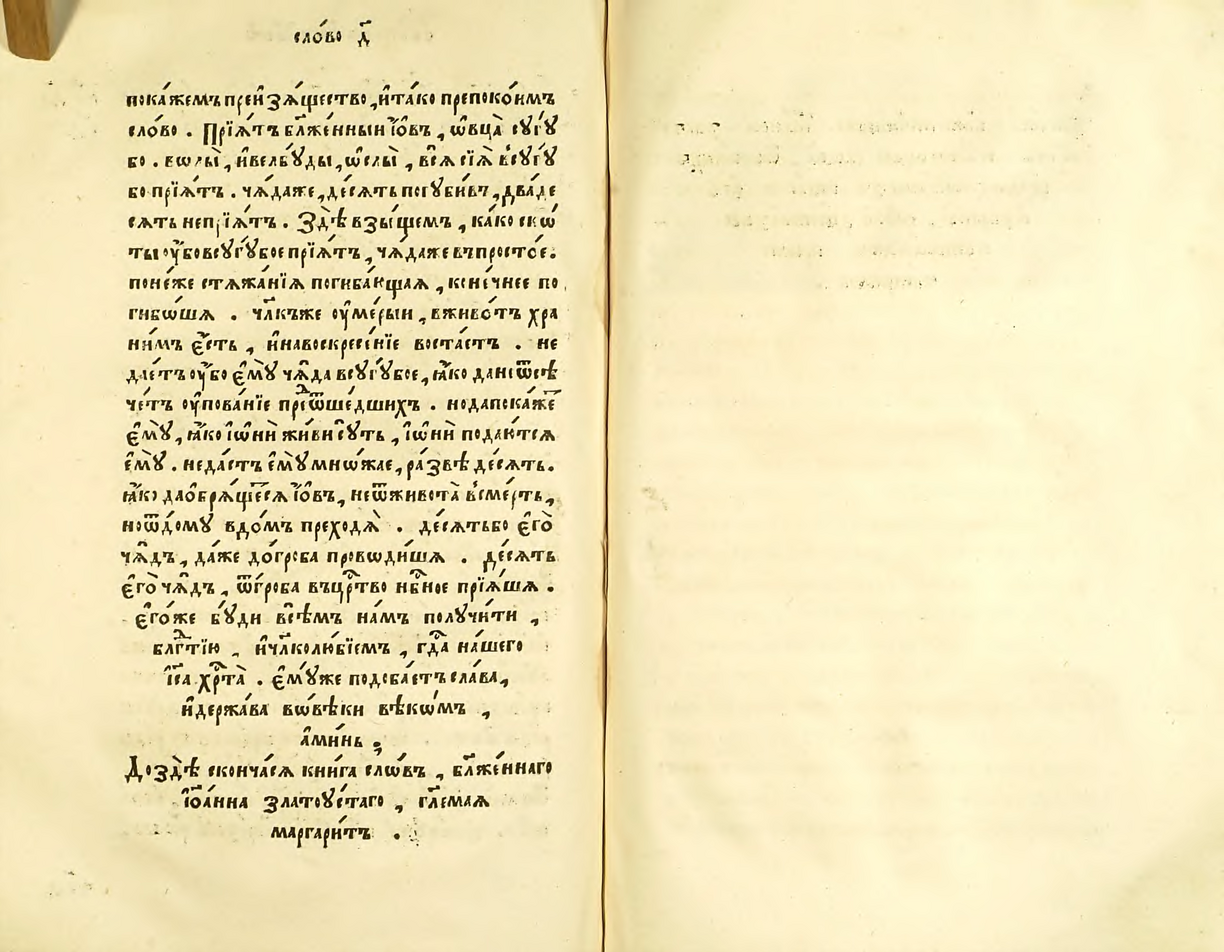 сло́во д҃
пока́жемъ преи҆зѧ́щество , и҆та́ко препоко́имъ
сло́во . Прїѧ́тъ бл҃же́нныи і҆́овъ , ѡ҆вца̀ сꙋгꙋ́
бо . волы̀ , и҆велбꙋ́ды , ѡ҆слы̀ , всѧ̑ сїѧ̀ всꙋгꙋ́
бо прїѧ́тъ . чѧ́даже , де́сѧть погꙋби́въ , два́де
сѧть непрїѧ́тъ . Здѣ̀ взы́щемъ , ка́ко ско
ты ᲂу҆́бо всꙋгꙋ́бое прїѧ́тъ , чѧ́даже въпросто́е .
поне́же стѧжа́нїѧ погиба́ющаѧ , коне́чнее по
ги́бѡшѧ . чл҃къже ᲂу҆ме́рыи , вживо́тъ хра
ни́мъ є҆́сть , и҆навоскресе́нїе воста́етъ . не
дае́тъ ᲂу҆́бо є҆мꙋ̀ чѧ́да всꙋгꙋ́бое , ꙗ҆́ко дані ѿсѣ
че́тъ ᲂу҆пова́нїе преѿше́дшихъ . нодапока́же
є҆мꙋ̀ , ꙗ҆́ко і҆ѡнѝ жи́ви сꙋ́ть , і҆ѡнѝ подаю́тсѧ
є҆мꙋ̀ . неда́стъ є҆мꙋ̀ мно́жае , ра́звѣ де́сѧть .
ꙗ҆́ко даѡ҆брѧ́щесѧ і҆́овъ , неѿживота̀ всме́рть ,
ноѿдо́мꙋ вдо́мъ преходѧ̀ . де́сѧтьбо є҆го̀
чѧ̑дъ , да́же до́гроба прово́дишѧ . де́сѧть
є҆го̀ чѧ̑дъ , ѿгро́ба въцр҃тво нб҃ное прїѧ́шѧ .
є҆го́же бꙋ́ди всѣ́мъ на́мъ полꙋчи́ти ,
блг҃тїю , и҆чл҃колю́бїемъ , гд҃а на́шего
і҆с҃а хр҃та̀ . є҆мꙋ́же подоба́етъ сла́ва ,
и҆держа́ва вѡвѣ́ки вѣкѡ́мъ ,
а҆ми́нь .
Доздѣ̀ сконча́сѧ кни́га сло́въ , бл҃же́ннаго
і҆ѡа́нна златоꙋ́стаго , гл҃емаѧ
маргари́тъ .